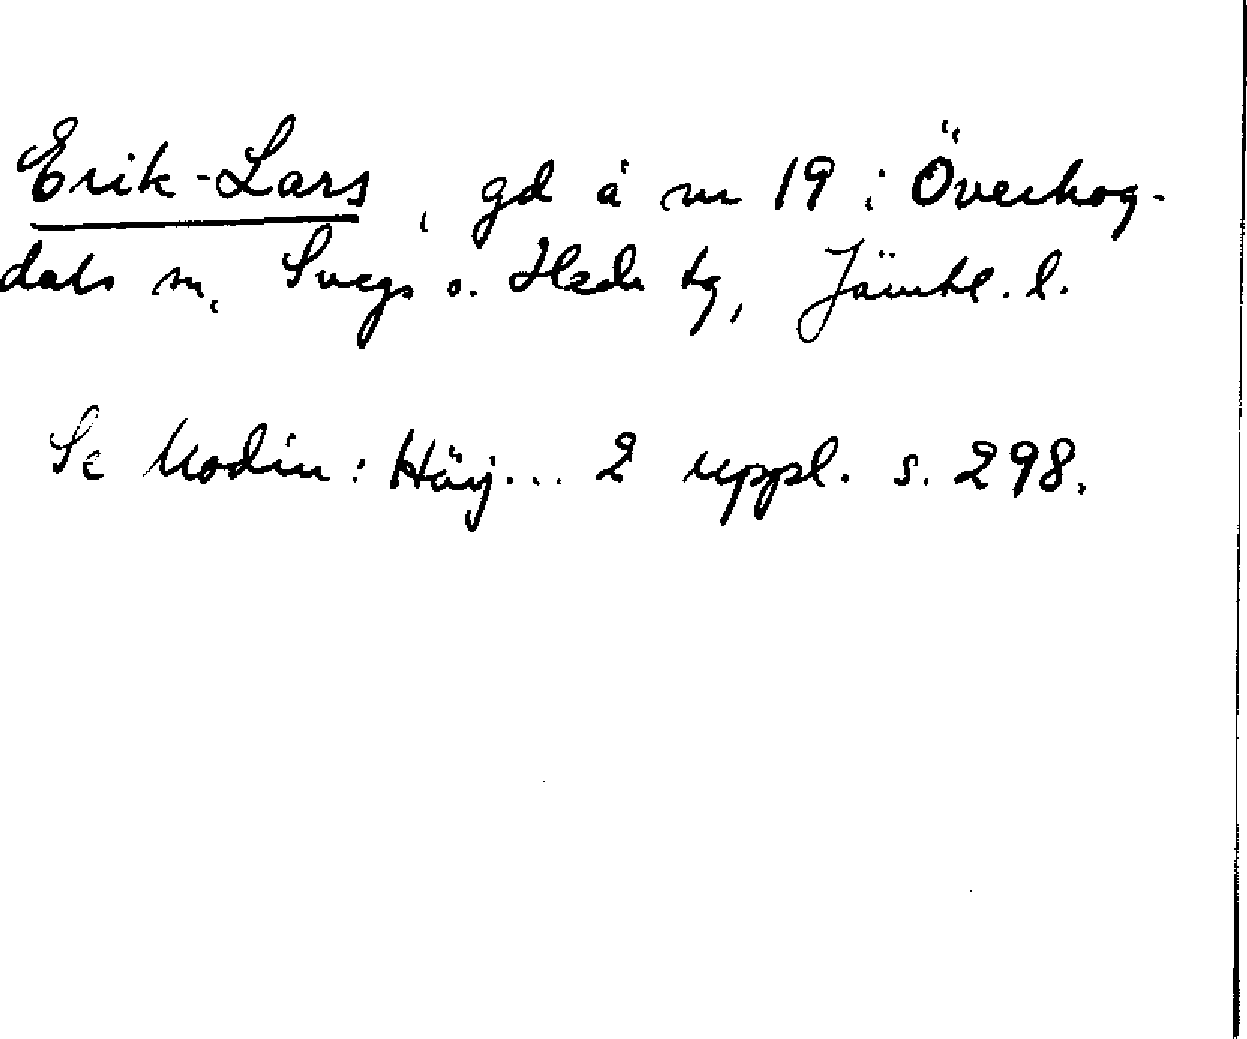 Erik-Lars, gd å nr 19 i Överhog-
dals sn, Svegs o. Hede tg, Jämtl. l.
Se Modin: Härj... 2 uppl. s. 298.